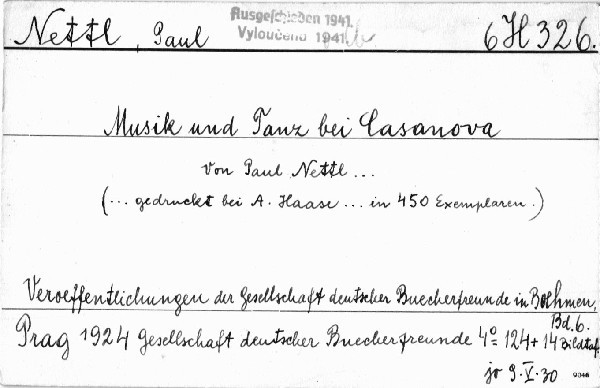 Nettl, Paul
Ausgeschieden 1941.
Vyloučeno 1941
6 H 326.
Musik und Tanz bei Casanova
von Paul Nettl ...
(... gedruckt bei A. Haase ... in 450 Exemplaren.)
Veroeffentlichungen der Gesellschaft deutscher Buecherfreunde in Boehmen,
Bd. 6.
Prag 1924 Gesellschaft deutscher Buecherfreunde 4º 124+14 Bildtaf.
jo 9.V.30